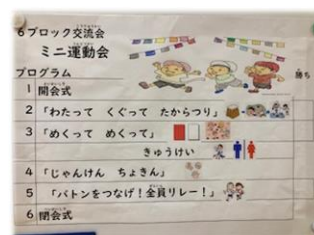 6ブロック交流会
ミニ運動会
プログラム
勝ち
1 開会式
2 「わたって くぐって たからつり」
3 「めくって めくって」
きゅうけい
4 「じゃんけん ちょきん」
5 「バトンをつなげ!全員リレー!」
6 閉会式